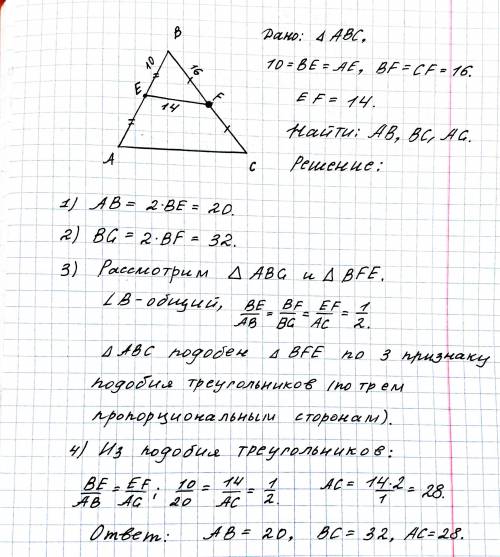 B
Дано: △ABC,
10
16
10 = BE = AE, BF = CF = 16.
E
F
14
EF = 14.
Найти: AB, BC, AC.
A
C
Решение:
1) AB = 2·BE = 20.
2) BC = 2·BF = 32.
3) Рассмотрим △ABC и △BFE.
∠B-общий, BE/AB = BF/BC = EF/AC = 1/2.
△ABC подобен △BFE по 3 признаку
подобия треугольников (по трем
пропорциональным сторонам).
4) Из подобия треугольников:
BE/AB = EF/AC; 10/20 = 14/AC = 1/2. AC = 14·2/1 = 28.
Ответ: AB = 20, BC = 32, AC = 28.